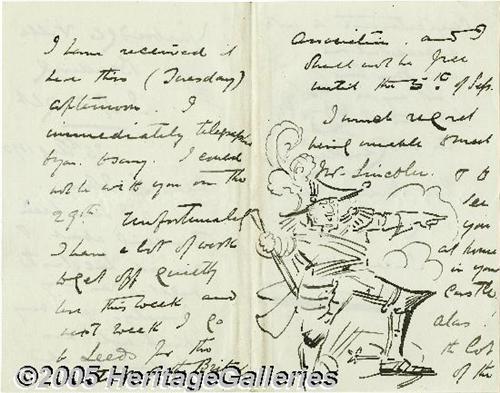 I have received it
here this (Tuesday)
afternoon. I
immediately telegraphed
to you to say I could
not be with you on the
29th Unfortunately
I have a lot of work
to get off quietly
here this week and
next week I go
to Leeds for the
British
Association and I
shall not be free
until the 5th of Sep.
I much regret
being unable to meet
Mr. Lincoln. & to
see
you
at home
in your
Castle,
alas!
the
of the
©2005 HeritageGalleries